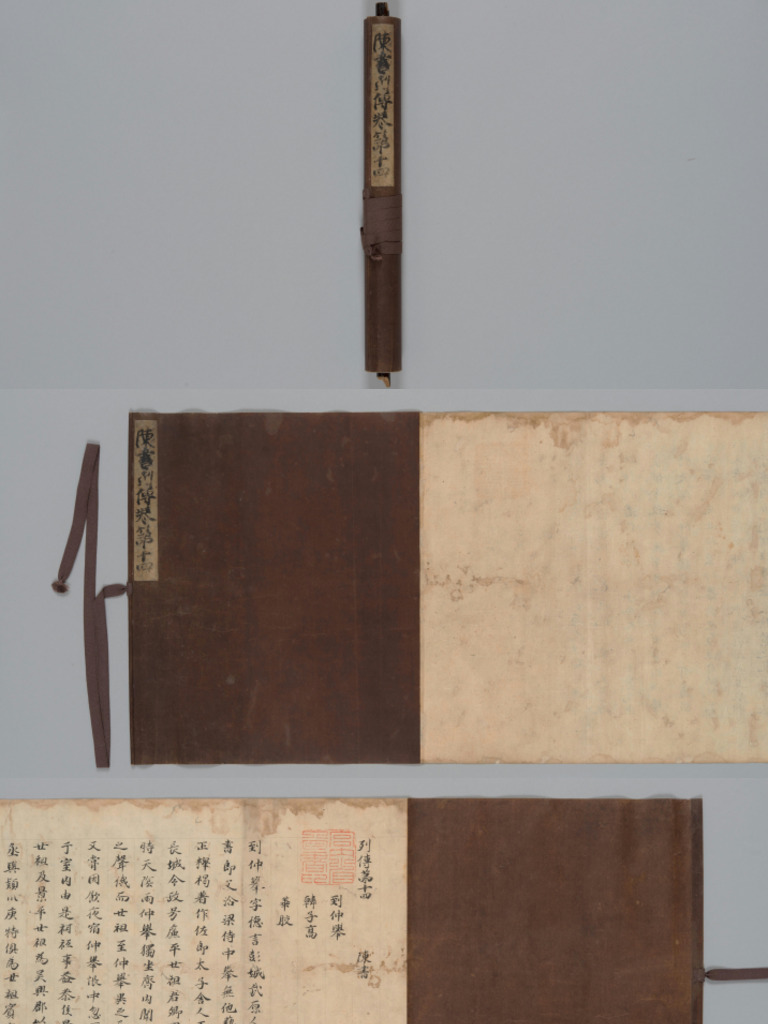 陳書列傳卷第十四
陳書列傳卷第十四
列傳第十四 陳書
到仲舉
韓子高
華皎
到仲舉字德言彭城武原人
書郎父洽梁侍中舉無他藝
正釋褐著作佐郎太子舍人王
長城令政号廉平世祖居鄉
時天陰雨仲舉獨坐齊内聞
之聲俄而世祖至仲舉異之乃
又嘗因飲夜宿仲舉帳中忽
于室内由是祗承事益恭侯景
世祖及景平世祖為吳興郡
丞與潁川庾持俱為世祖賓